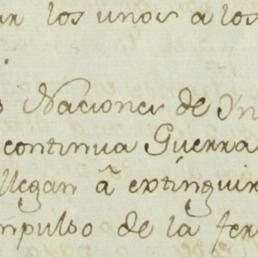 ar los unos a los
Naciones de Yn
continua Guerra
llegan â extinguir
mpulso de la fer